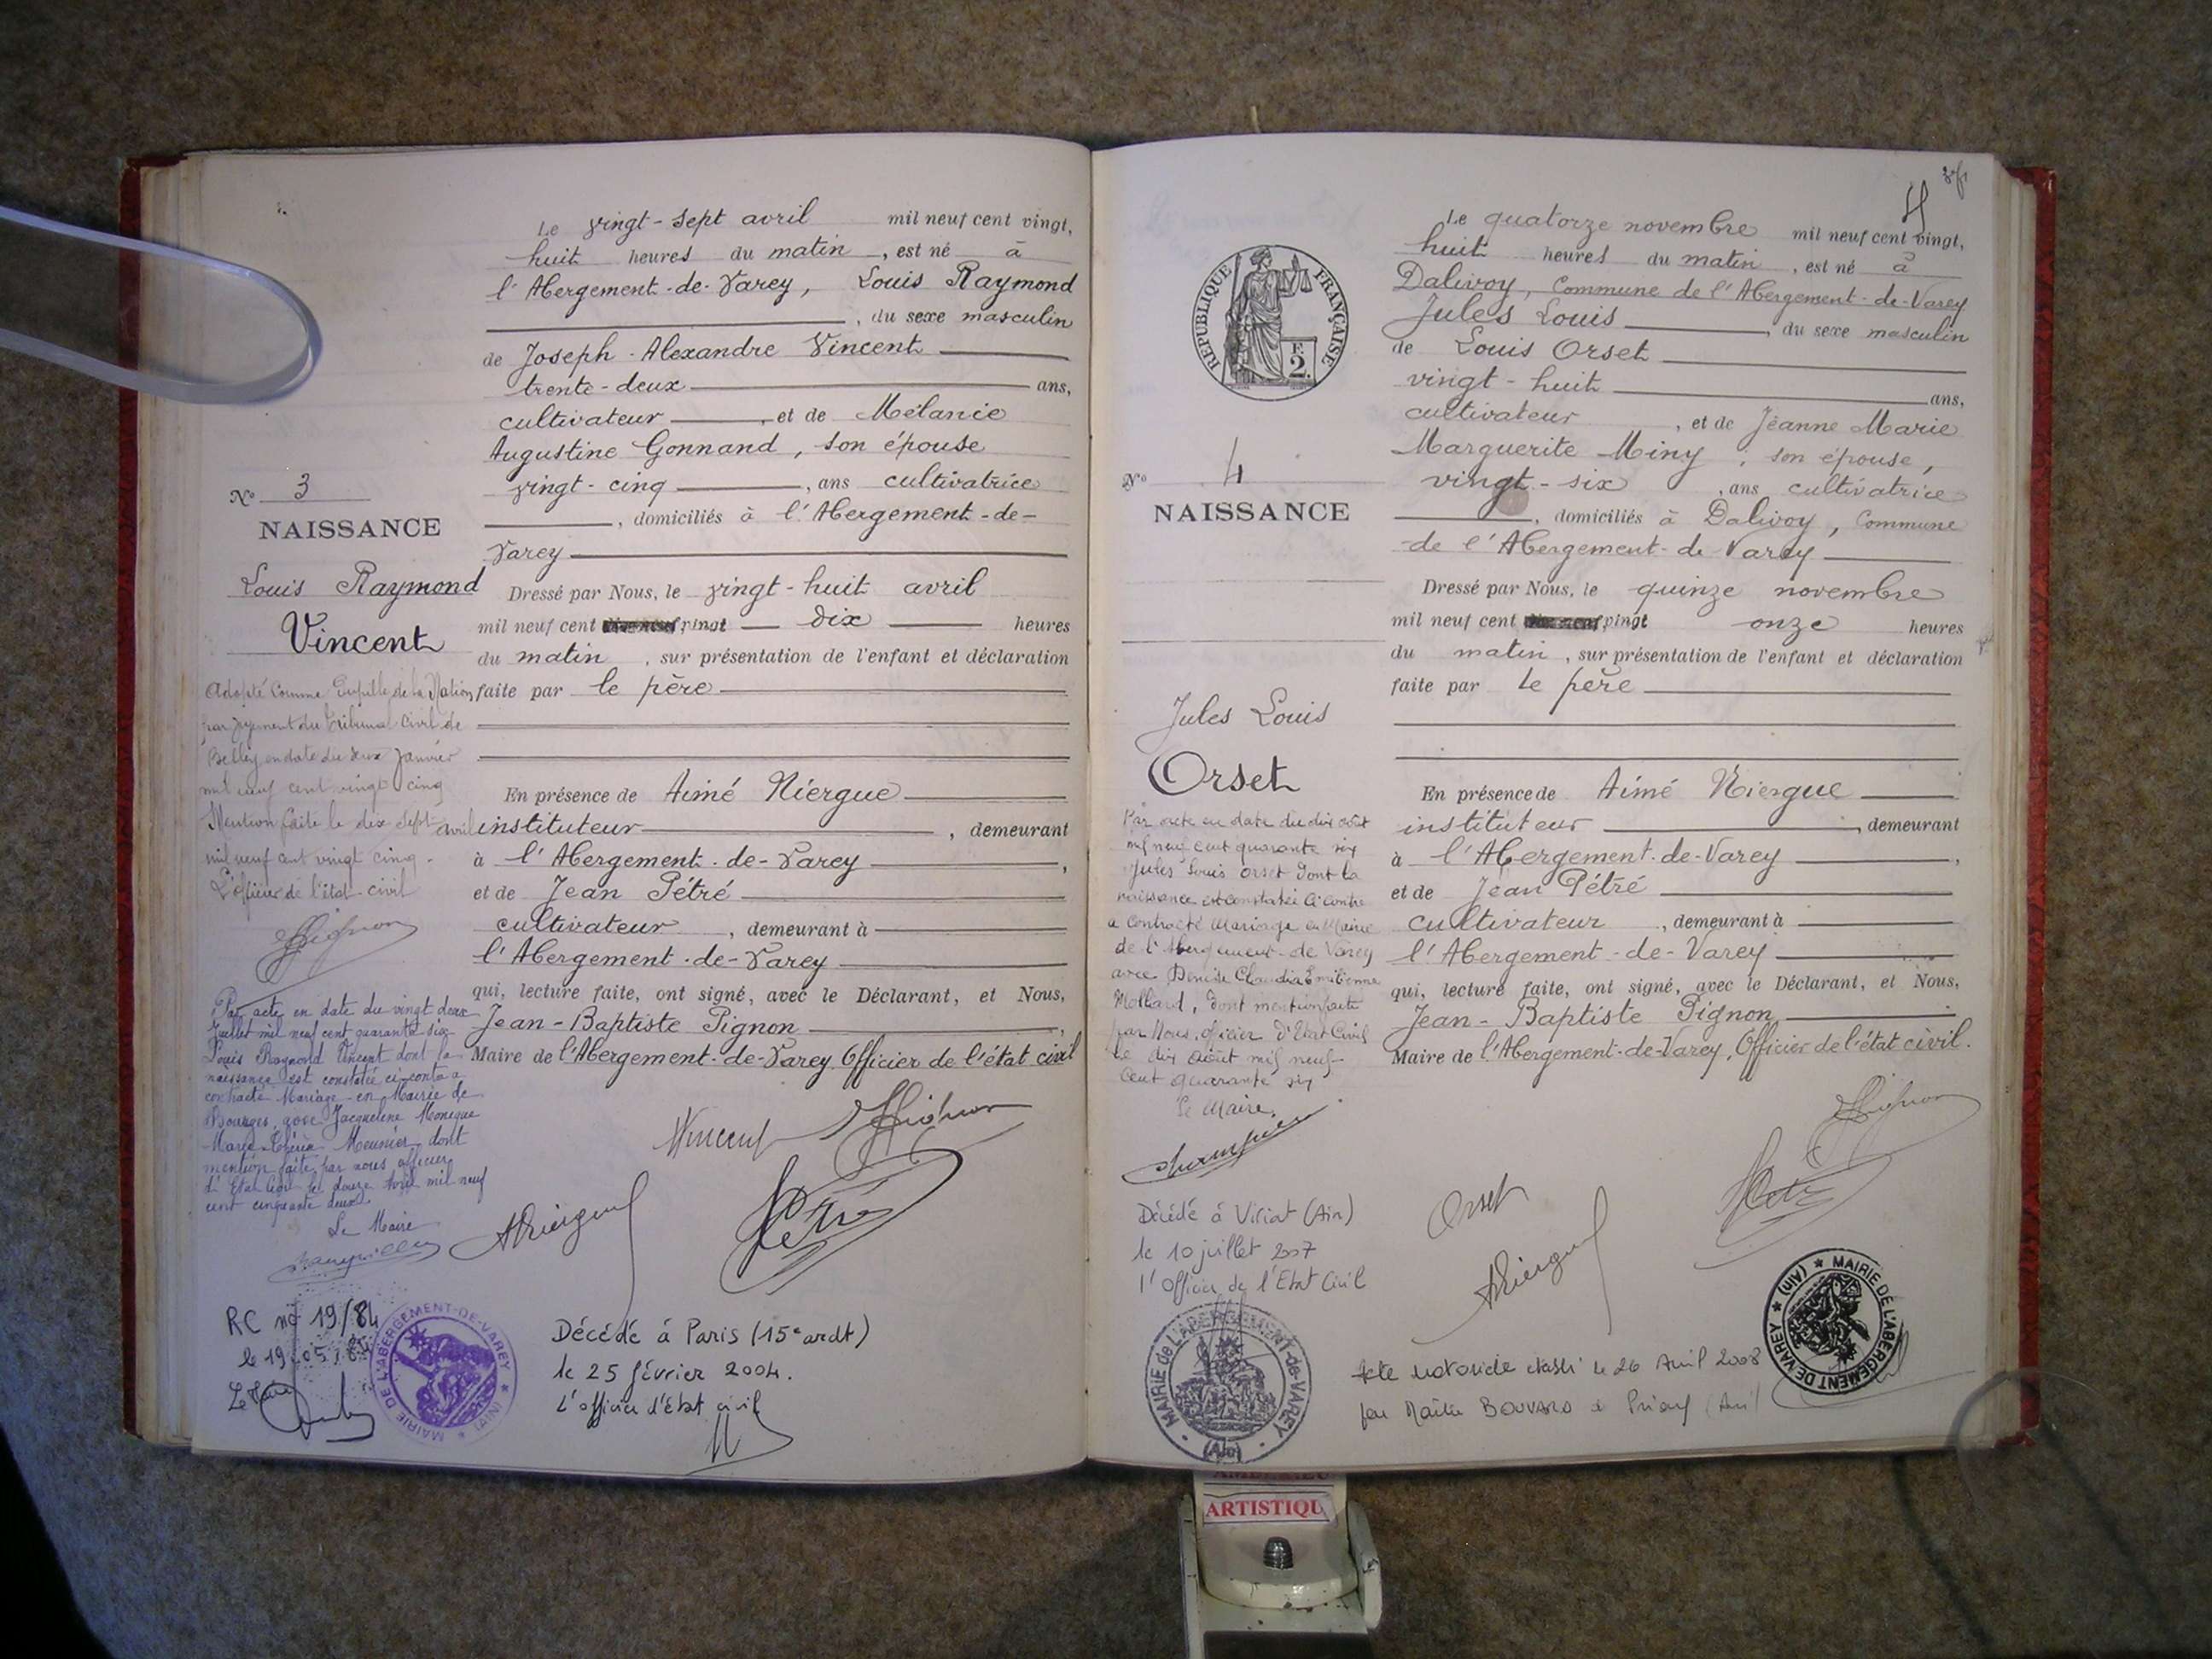 Le vingt-sept avril mil neuf cent vingt,
huit heures du matin, est né à
l'Abergement-de-Varey, Louis Raymond
, du sexe masculin
de Joseph Alexandre Vincent
trente-deux ans,
cultivateur, et de Mélanie
Augustine Gonnand, son épouse
vingt-cinq, ans cultivatrice
, domiciliés à l'Abergement-de-
Varey
Dressé par Nous, le vingt-huit avril
mil neuf cent vingt dix heures
du matin, sur présentation de l'enfant et déclaration
faite par le père
En présence de Aimé Niergue
instituteur, demeurant
à l'Abergement-de-Varey,
et de Jean Pétré
cultivateur, demeurant à
l'Abergement-de-Varey
qui, lecture faite, ont signé, avec le Déclarant, et Nous,
Jean-Baptiste Pignon,
Maire de l'Abergement-de-Varey, Officier de l'état civil
Vincent
Pignon
ANiergue
Pétré
N° 3
NAISSANCE
Louis Raymond
Vincent
Adopté comme Pupille de la Nation
par jugement du Tribunal Civil de
Belley en date du deux janvier
mil neuf cent vingt cinq
Mention faite le dix sept avril
mil neuf cent vingt cinq.
L'officier de l'état-civil
Pignon
Par acte en date du vingt deux
Juillet mil neuf cent quarante six
Louis Raymond Vincent dont la
naissance est constatée ci-contre a
contracté Mariage en Mairie de
Bourges avec Jacqueline Monique
Marie Meunier dont
mention faite par nous officier
d'Etat Civil le douze Avril mil neuf
cent cinquante deux
Le Maire
RC n° 19/84
le 19
Le Maire
MAIRIE DE L'ABERGEMENT-DE-VAREY (AIN)
Décédé à Paris (15e ardt)
le 25 février 2004.
L'officier d'état civil
4
Le quatorze novembre mil neuf cent vingt,
huit heures du matin, est né à
Dalivoy, Commune de l'Abergement-de-Varey
Jules Louis, du sexe masculin
de Louis Orset
vingt-huit ans,
cultivateur, et de Jeanne Marie
Marguerite Miny, son épouse,
vingt-six, ans cultivatrice
, domiciliés à Dalivoy, Commune
de l'Abergement-de-Varey
Dressé par Nous, le quinze novembre
mil neuf cent vingt onze heures
du matin, sur présentation de l'enfant et déclaration
faite par le père
En présence de Aimé Niergue
instituteur, demeurant
à l'Abergement-de-Varey,
et de Jean Pétré
cultivateur, demeurant à
l'Abergement-de-Varey
qui, lecture faite, ont signé, avec le Déclarant, et Nous,
Jean-Baptiste Pignon
Maire de l'Abergement-de-Varey, Officier de l'état civil.
Pignon
Orset
Pétré
ANiergue
RÉPUBLIQUE FRANÇAISE
F.
2.
N° 4
NAISSANCE
Jules Louis
Orset
Par acte en date du dix août
mil neuf cent quarante six
Jules Louis Orset dont la
naissance est constatée ci contre
a contracté Mariage en Mairie
de l'Abergement-de Varey
avec Denise Claudia Emilienne
Mollard, dont mention faite
par Nous, officier d'Etat Civil
le dix Août mil neuf
cent quarante six
Le Maire,
Décédé à Viriat (Ain)
le 10 juillet 2007
l'Officier de l'Etat Civil
MAIRIE de L'ABERGEMENT-de-VAREY
(Ain)
Acte notoriété établi le 26 Avril 2008
par Maître BOUVARD
MAIRIE DE L'ABERGEMENT DE VAREY (AIN)
ARTISTIQU